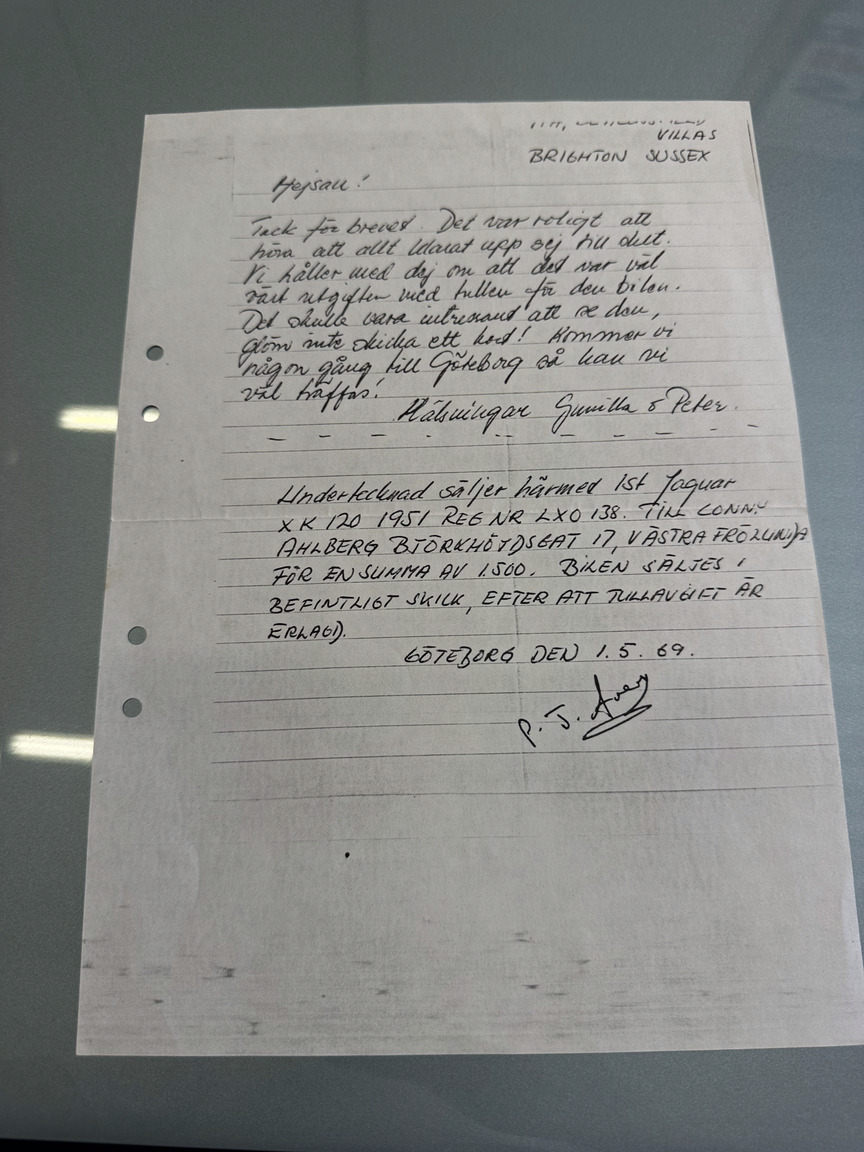 VILLAS
BRIGHTON SUSSEX
Hejsan!
Tack för brevet. Det var roligt att
höra att allt klarat upp sej till slut.
Vi håller med dej om att det var väl
värt utgiften med tullen för den bilen.
Det skulle vara intressant att se den,
glöm inte skicka ett kort! Kommer vi
någon gång till Göteborg så kan vi
väl träffas!
Hälsningar Gunilla o Peter.
Undertecknad säljer härmed 1st Jaguar
XK 120 1951 REG NR LXO 138. TILL CONNY
AHLBERG BJÖRKHÖJDSGAT 17, VÄSTRA FRÖLUNDA
FÖR EN SUMMA AV 1.500. BILEN SÄLJES I
BEFINTLIGT SKICK, EFTER ATT TULLAVGIFT ÄR
ERLAGD.
GÖTEBORG DEN 1.5.69.
P. J. Avery